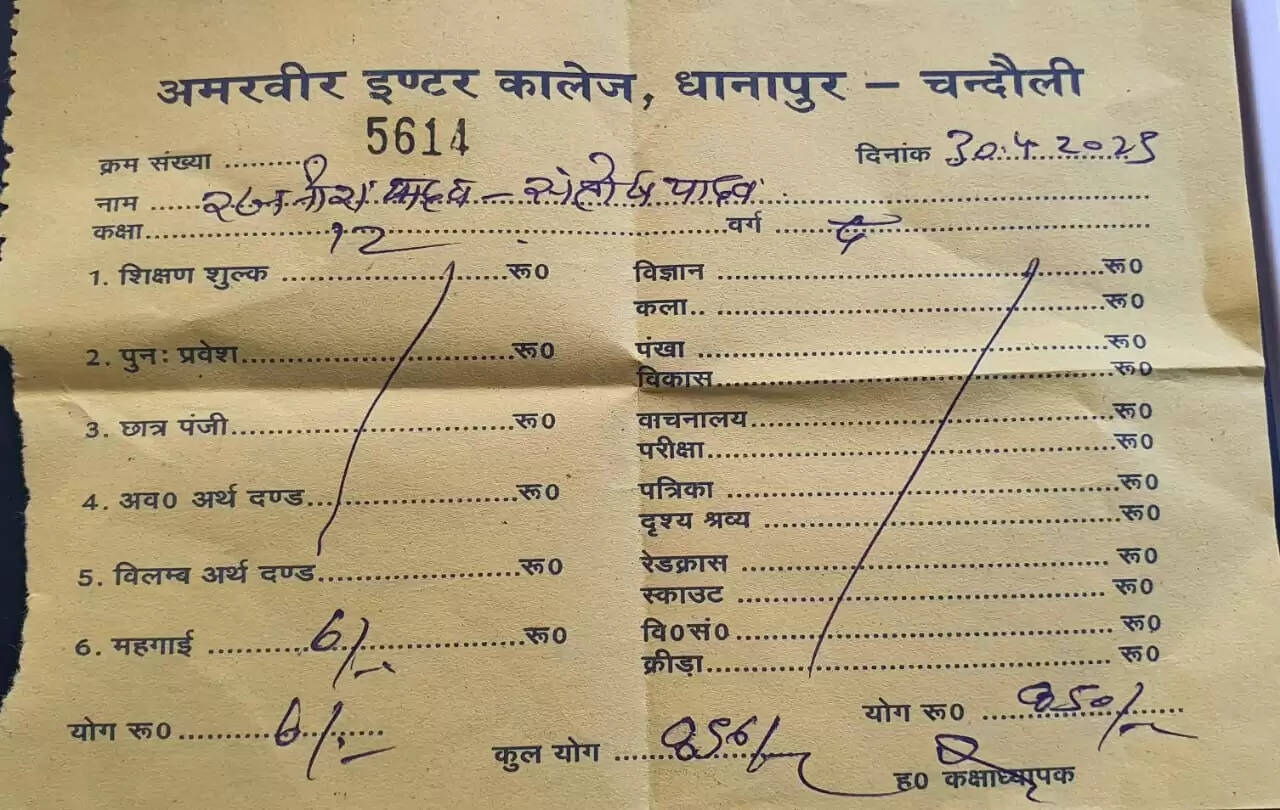 अमरवीर इण्टर कालेज, धानापुर – चन्दौली
क्रम संख्या .......... 5614 दिनांक 30.4.2023
नाम ...... रजनीश यादव – संतोष यादव
कक्षा...... 12 ......वर्ग ......
1. शिक्षण शुल्क ......रू0 विज्ञान ......रू0
कला.. ......रू0
2. पुनः प्रवेश......रू0 पंखा ......रू0
विकास......रू0
3. छात्र पंजी......रू0 वाचनालय......रू0
परीक्षा......रू0
4. अव0 अर्थ दण्ड......रू0 पत्रिका ......रू0
दृश्य श्रव्य ......रू0
5. विलम्ब अर्थ दण्ड......रू0 रेडक्रास ......रू0
स्काउट ......रू0
6. महगाई ...... 6/- ......रू0 वि0सं0......रू0
क्रीड़ा......रू0
योग रू0 ...... 6/- योग रू0 ...... 850/-
कुल योग ...... 856/-
ह0 कक्षाध्यापक